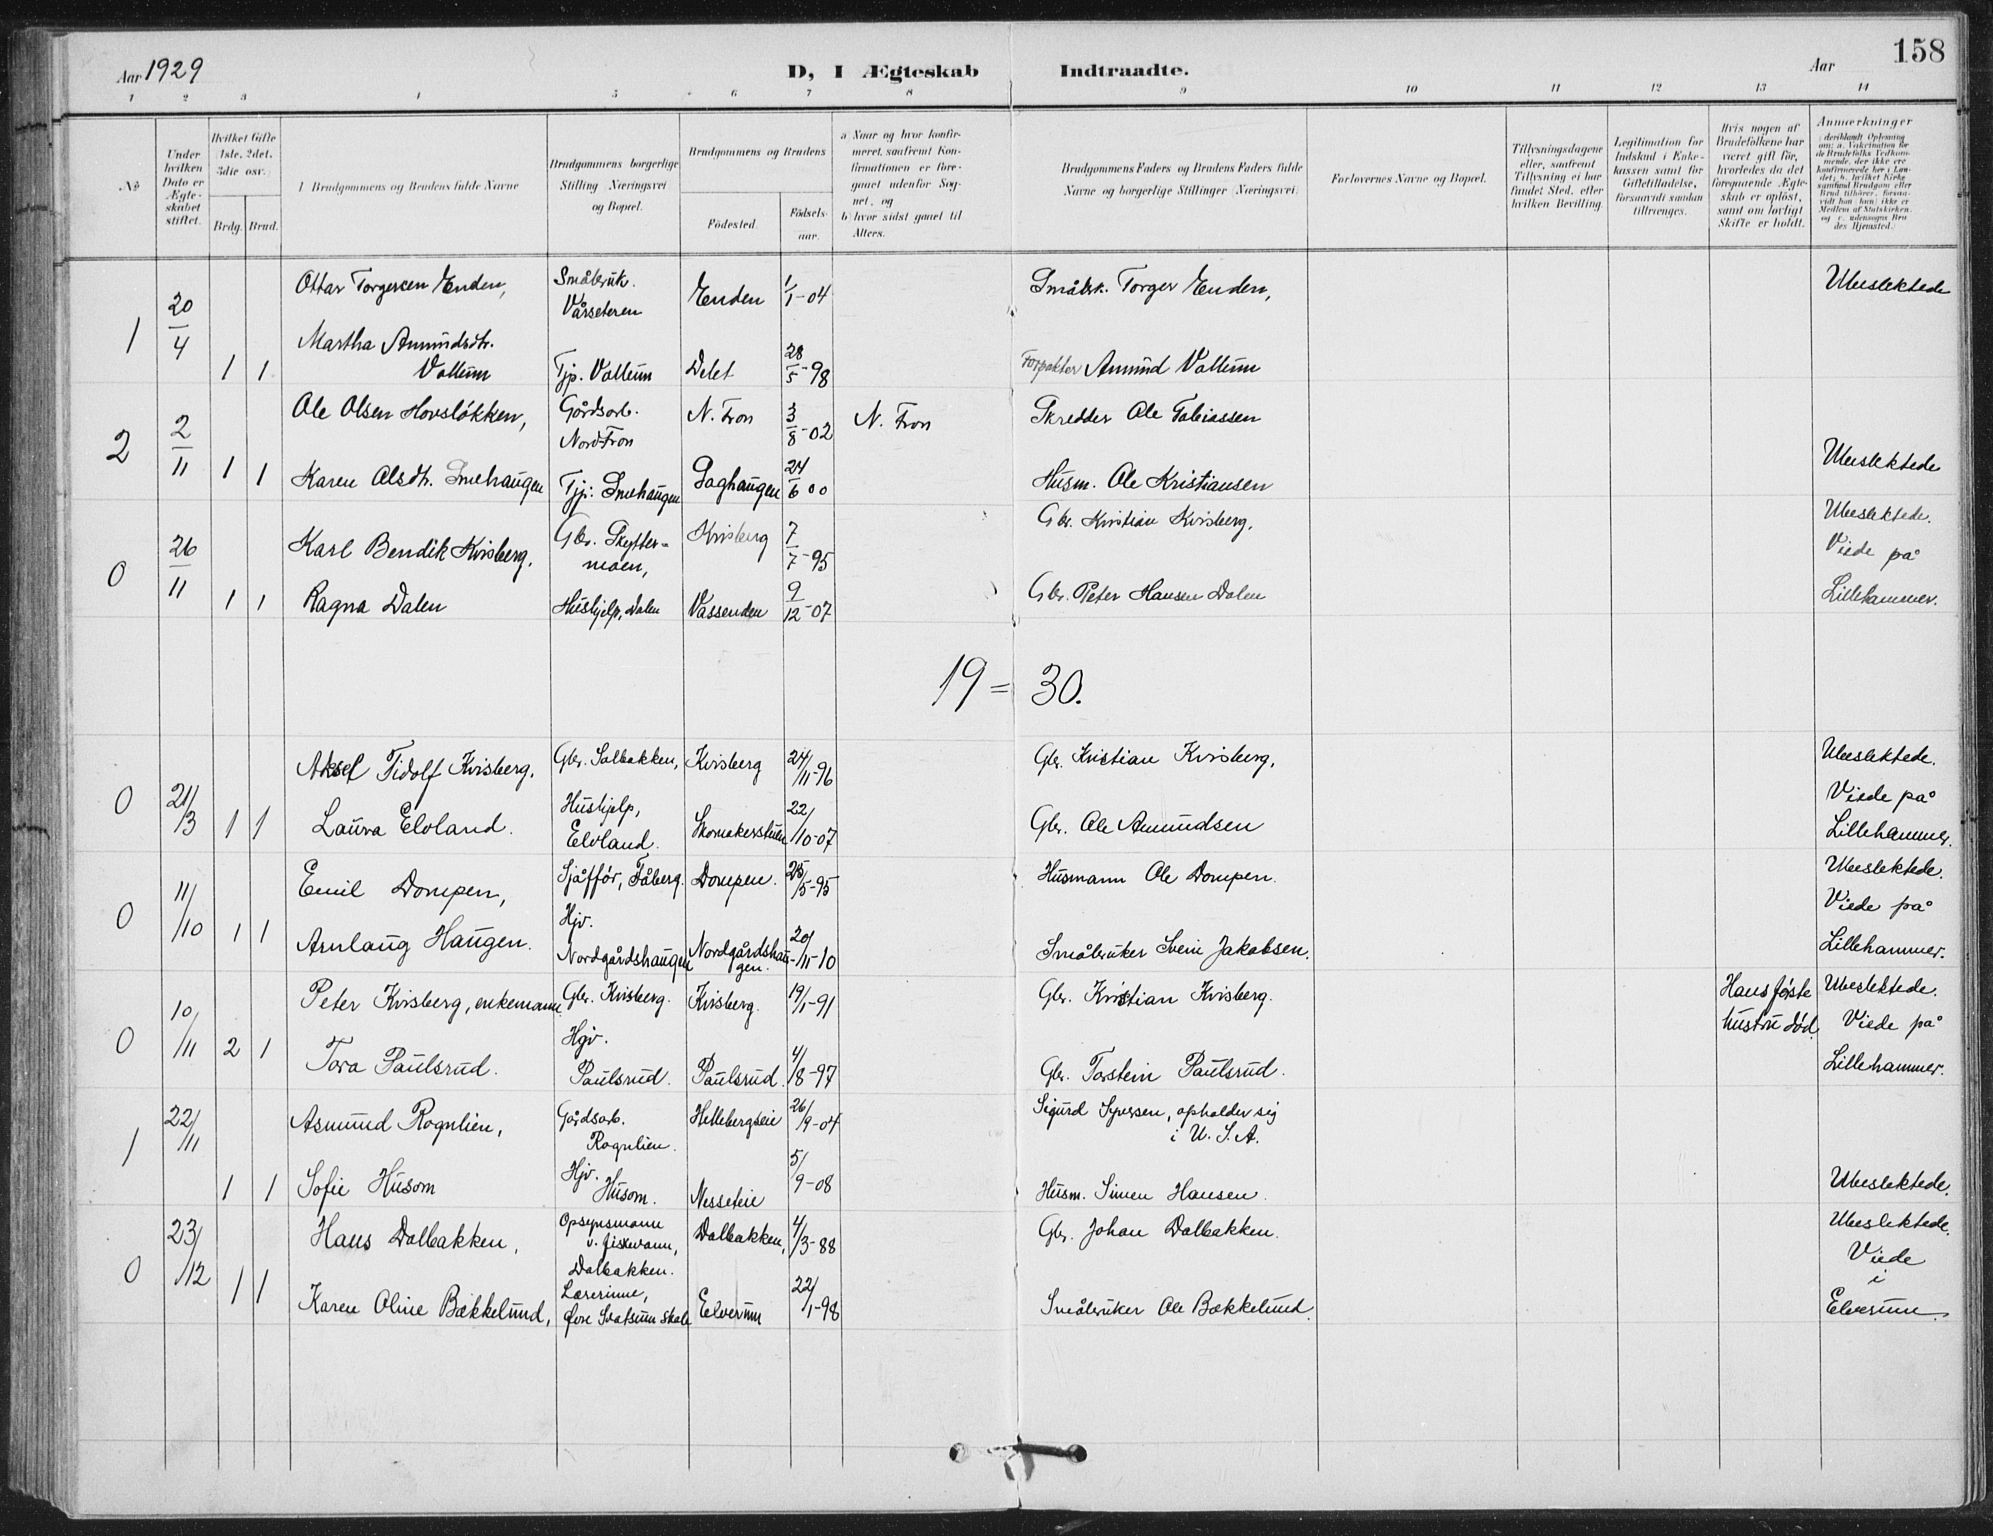 Aar 1929 D, I Ægteskab Indtraadte. Aar 158
1 2 3 4 5 6 7 8 9 10 11 12 13 14
No
Under hvilken Dato er Ægteskabet stiftet.
Hvilket Gifte 1ste, 2det, 3die osv.)
Brdg. Brud.
Brudgommens og Brudens fulde Navne
Brudgommens borgerlige Stilling Næringsvei og Bopæl.
Brudgommens og Brudens
Födested. Födselsaar.
a Naar og hvor konfirmeret, saafremt Konfirmationen er foregaaet udenfor Sognet, og b) hvor sidst gaaet til Alters.
Brudgommens Faders og Brudens Faders fulde Navne og borgerlige Stillinger (Næringsvei)
Forlovernes Navne og Bopæl.
Tillysningsdagene eller, saafremt Tillysning ei har fundet Sted, efter hvilken Bevilling.
Legitimation for Indskud i Enkekassen samt for Giftetilladelse, forsaavidt saadan tiltrænges.
Hvis nogen af Brudefolkene har været gift för, hvorledes da det foregaaende Ægteskab er oplöst, samt om lovligt Skifte er holdt.
Anmærkninger
1 20/4 Ottar Torgersen Enden, Småbruk. Vårseteren Enden 1/1-04 Småbrk. Torger Enden, Ubeslektede
1 1 Martha Amundsdtr. Vollum Tjp. Vollum Delet 28/5-98 Forpakter Amund Vollum
2 2/11 Ole Olsen Hovsløkken, Gårdsarb. Nord-Fron N. Fron 3/8-02 N. Fron Skredder Ole Tobiassen
1 1 Karen Olsdtr. Smehaugen Tjp. Smehaugen 24/6 00 Husm. Ole Kristiansen Ubeslektede
0 26/11 Karl Bendik Kvisberg, Gbr. Skyttermoen, Kvisberg 7/7-95 Gbr. Kristian Kvisberg, Ubeslektede. Viede på
1 1 Ragna Dalen Hushjelp, Dalen Vassenden 9/12-07 Gbr. Peter Hansen Dalen Lillehammer.
19=30.
0 21/3 Aksel Tidolf Kvisberg. Gbr. Solbakken, Kvisberg 24/11-96 Gbr. Kristian Kvisberg, Ubeslektede. Viede på
1 1 Laura Elvland. Hushjelp, Elvland. Skomakerstuen 22/10-07 Gbr. Ole Amundsen Lillehammer.
0 11/10 Emil Dompen, Sjåffør, Fåberg. Dompen. 25/5-95 Husmann Ole Dompen. Ubeslektede. Viede på
1 1 Arnlaug Haugen. Hjv. Nordgårdshaugen Nordgårdshaugen. 20/11-10 Småbruker Svein Jakobsen. Lillehammer.
0 10/11 Peter Kvisberg, enkemann Gbr. Kvisberg. Kvisberg. 19/1-91 Gbr. Kristian Kvisberg. Hans første hustru død. Ubeslektede. Viede på
2 1 Tora Paulsrud. Hjv. Paulsrud. Paulsrud. 4/8-97 Gbr. Torstein Paulsrud. Lillehammer.
1 22/11 Asmund Rognlien, Gårdsarb. Rognlien. Hellebergseie 26/9-04 Sigurd Syversen, opholder sig i U. S. A.
1 1 Sofie Husom Hjv. Husom. Nesseteie 5/9-08 Husm. Simen Hansen. Ubeslektede.
0 23/12 Hans Dalbakken, Opsynsmann v. fiskevann, Dalbakken. Dalbakken, 4/3-88 Gbr. Johan Dalbakken. Ubeslektede. Viede i
1 1 Karen Oline Bækkelund, Lærerinne, Øvre Svatsum skole Elverum 22/1-98 Småbruker Ole Bækkelund Elverum.